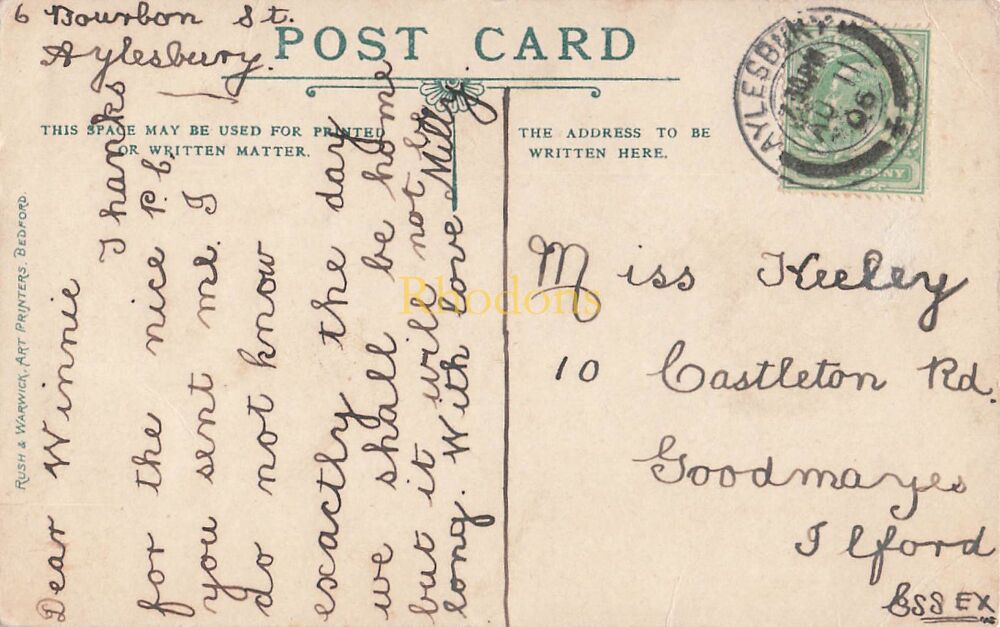 6 Bourbon St.
Aylesbury.
POST CARD
THIS SPACE MAY BE USED FOR PRINTED
OR WRITTEN MATTER.
THE ADDRESS TO BE
WRITTEN HERE.
AYLESBURY
AU 11
06
PENNY
RUSH & WARWICK, ART PRINTERS, BEDFORD.
Dear Winnie
Thanks
for the nice P.C.
you sent me. I
do not know
exactly the day
we shall be home
but it will not be
long. With love Milly
Miss Keeley
10 Castleton Rd.
Goodmayes
Ilford
ESSEX
Rhodons